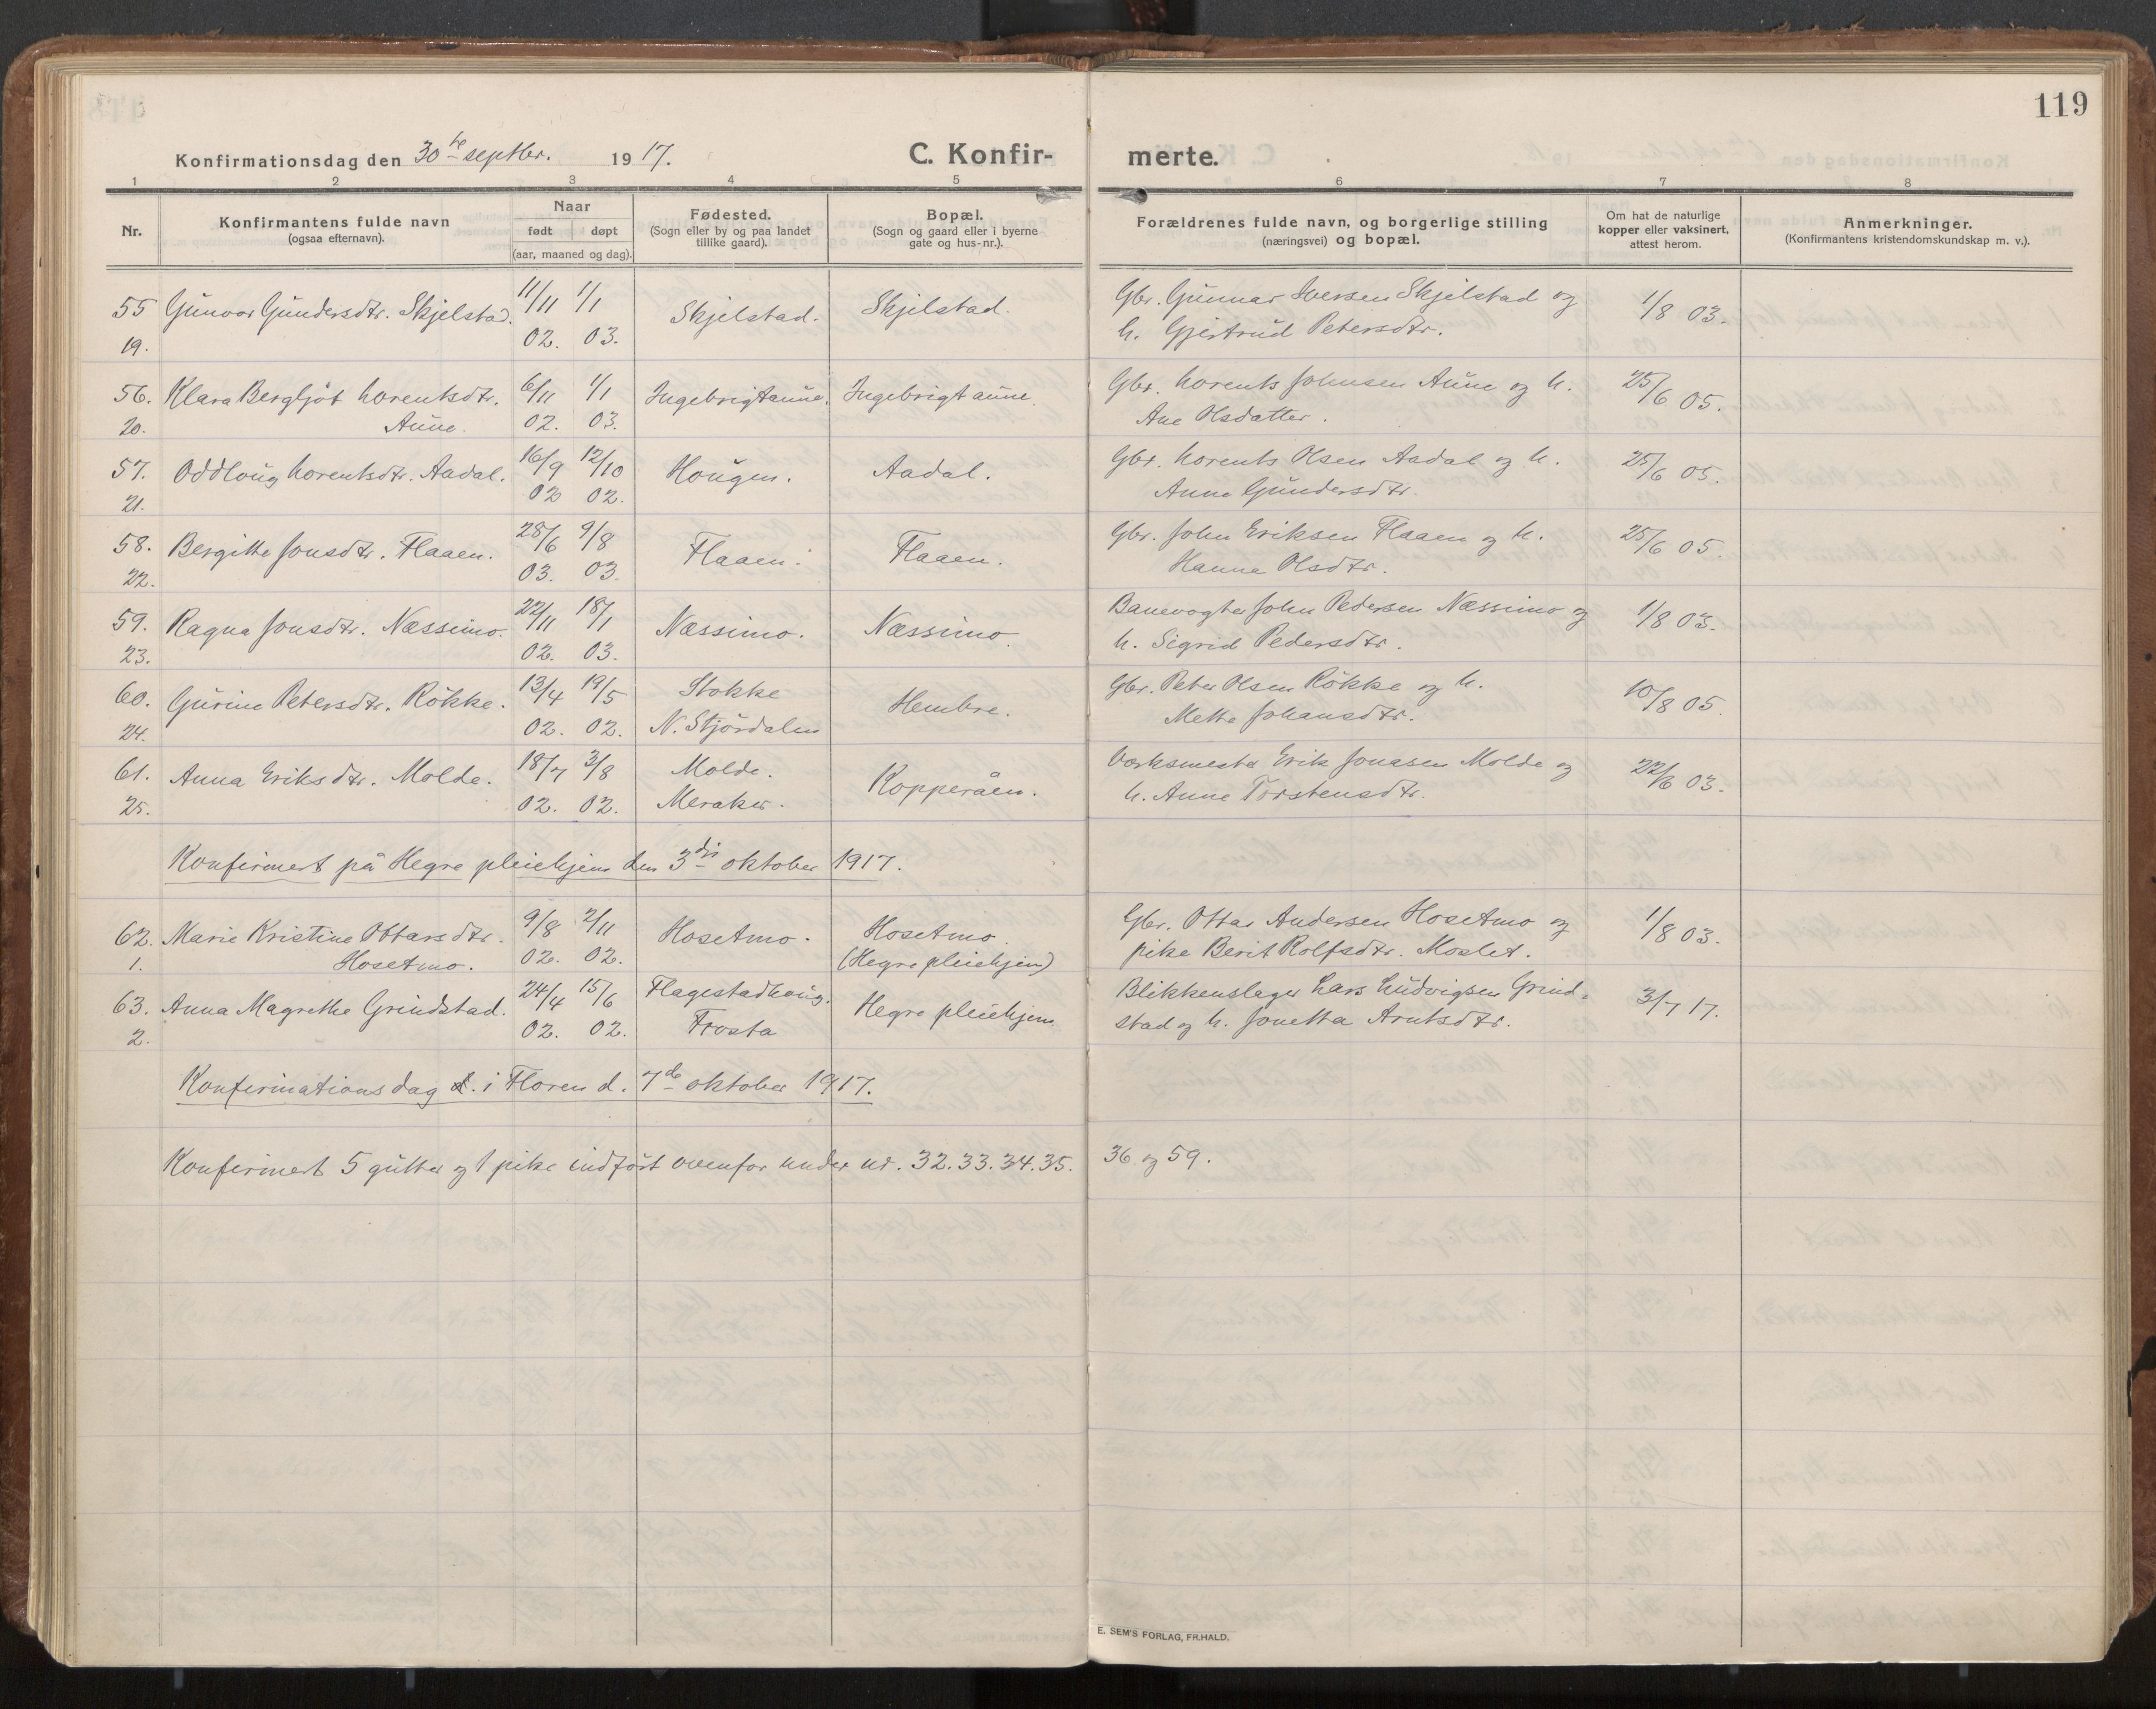 119
Konfirmationsdag den 30te septbr. 1917. C. Konfir- merte.
1 2 3 4 5 6 7 8
Nr.
Konfirmantens fulde navn
(ogsaa efternavn).
Naar
født døpt
(aar, maaned og dag).
Fødested.
(Sogn eller by og paa landet
tillike gaard).
Bopæl.
(Sogn og gaard eller i byerne
gate og hus-nr.).
Forældrenes fulde navn, og borgerlige stilling
(næringsvei) og bopæl.
Om hat de naturlige
kopper eller vaksinert,
attest herom.
Anmerkninger.
(Konfirmantens kristendomskundskap m. v.).
55 Gunvor Gundersdtr. Skjelstad. 11/11 1/1 Skjelstad. Skjelstad. Gbr. Gunnar Iversen Skjelstad og 1/8 03.
19. 02. 03. h. Gjertrud Petersdtr.
56. Klara Bergljot Lorentsdtr. 6/11 1/1 Ingebrigtaune. Ingebrigtaune. Gbr. Lorents Johnsen Aune og h. 25/6 05.
20. Aune. 02. 03. Ane Olsdatter.
57. Oddloug Lorentsdtr. Aadal. 16/9 12/10 Hougen. Aadal. Gbr. Lorents Olsen Aadal og h. 25/6 05.
21. 02 02. Anna Gundersdtr.
58. Bergitte Jonsdtr. Flaaen. 28/6 9/8 Flaaen. Flaaen. Gbr. John Eriksen Flaaen og h. 25/6 05.
22. 03. 03. Hanna Olsdtr.
59. Ragna Jonsdtr. Næssimo. 22/11 18/1 Næssimo. Næssimo. Banevogter John Pedersen Næssimo og 1/8 03.
23. 02. 03. h. Sigrid Pedersdtr.
60. Gurine Petersdtr. Rökke. 13/4 19/5 Stokke Hembre. Gbr. Peter Olsen Rökke og h. 10/8 05.
24. 02. 02. N. Stjördalen Mette Johansdtr.
61. Anna Eriksdtr. Molde. 18/7 3/8 Molde. Kopperåen. Værksmester Erik Jonasen Molde og 22/6 03.
25. 02. 02. Meraker. h. Anne Torstensdtr.
Konfirmert på Hegre pleiehjem den 3die oktober 1917.
62. Marie Kristine Ottarsdtr. 9/8 2/11 Hosetmo. Hosetmo. Gbr. Ottar Andersen Hosetmo og 1/8 03.
1. Hosetmo. 02. 02. (Hegre pleiehjem) pike Berit Rolfsdtr. Moslet.
63. Anna Magrethe Grindstad. 24/4 15/6 Flagestadhoug. Hegre pleiehjem Blikkenslager Lars Ludvigsen Grind- 3/7 17.
2. 02. 02. Frosta stad og h. Jonetta Arntsdtr.
Konfirmationsdag d. i Floren d. 7de oktober 1917.
Konfirmert 5 gutter og 1 pike indfört ovenfor under nr. 32. 33. 34. 35. 36 og 59.
E. SEM'S FORLAG, FR.HALD.